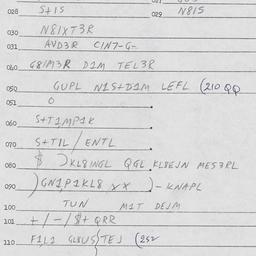 028 S+IS 029 N8IS
030 N8IXT3R
031 AVD3R CIN7-G-
040 G8IM3R D1M TEL3R
050 GUPL N1S+D1M LEFL (210 QQ
051 O
060 S+T1MP1K
070 S+TIL/ENTL
080 $ )KL8INGL QGL KL8EJN MES3RL
090 )GN1P1KL8 XX )-KNAPL
100 TUN M1T DEJM
101 +/-/$+ QRR
110 F1L1 GL8US)TEJ (252